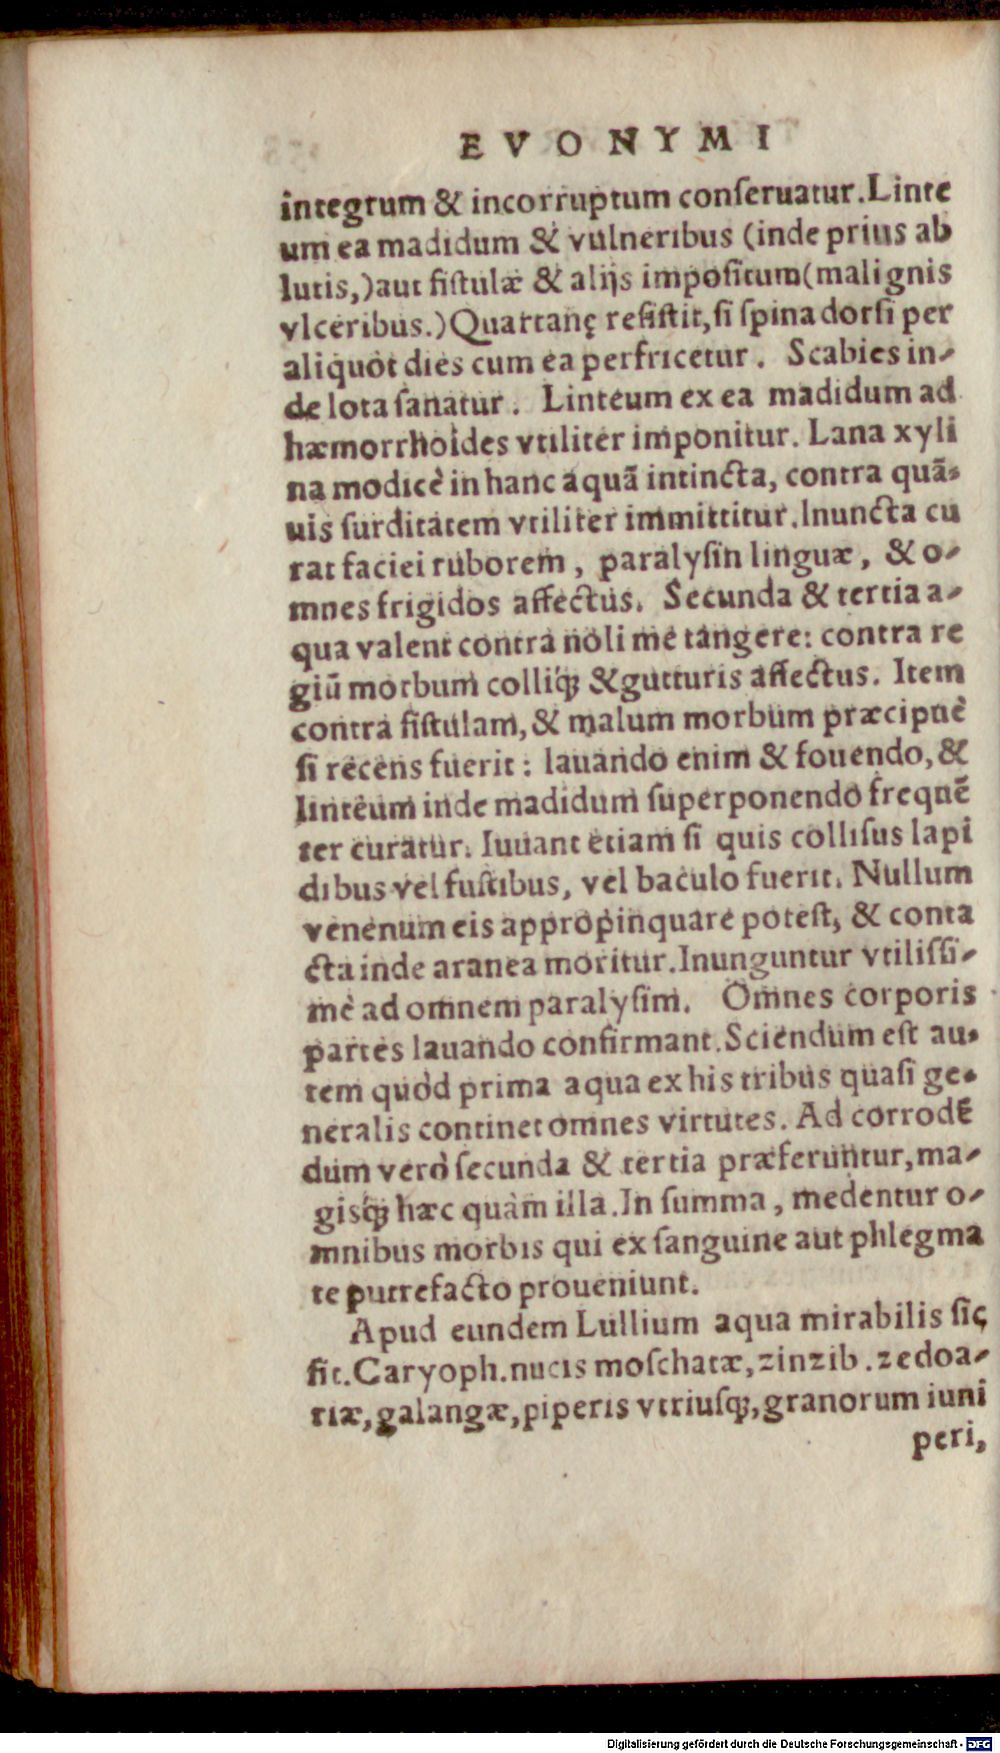 EVONYMI
integrum & incorruptum conſeruatur. Linte
um ea madidum & vulneribus (inde prius ab
lutis,) aut fiſtulæ & alijs impoſitum (malignis
vlceribus.) Quartanę reſiſtit, ſi ſpina dorſi per
aliquot dies cum ea perfricetur. Scabies in-
de lota ſanatur. Linteum ex ea madidum ad
hæmorrhoides vtiliter imponitur. Lana xyli
na modicè in hanc aquã intincta, contra quã-
uis ſurditatem vtiliter immittitur. Inuncta cu
rat faciei ruborem, paralyſin linguæ, & o-
mnes frigidos affectus. Secunda & tertia a-
qua valent contra noli me tangere: contra re
giũ morbum colliq́; & gutturis affectus. Item
contra fiſtulam, & malum morbum præcipuè
ſi recens fuerit: lauando enim & fouendo, &
linteum inde madidum ſuperponendo frequẽ
ter curatur. Iuuant etiam ſi quis colliſus lapi
dibus vel fuſtibus, vel baculo fuerit. Nullum
venenum eis appropinquare poteſt, & conta
cta inde aranea moritur. Inunguntur vtiliſſi-
mè ad omnem paralyſim. Omnes corporis
partes lauando confirmant. Sciendum eſt au-
tem quòd prima aqua ex his tribus quaſi ge-
neralis continet omnes virtutes. Ad corrodẽ
dum verò ſecunda & tertia præferuntur, ma-
giſq́; hæc quàm illa. In ſumma, medentur o-
mnibus morbis qui ex ſanguine aut phlegma
te putrefacto proueniunt.
Apud eundem Lullium aqua mirabilis ſic
fit. Caryoph. nucis moſchatæ, zinzib. zedoa-
riæ, galangæ, piperis vtriuſq;, granorum iuni
peri,
Digitalisierung gefördert durch die Deutsche Forschungsgemeinschaft - DFG